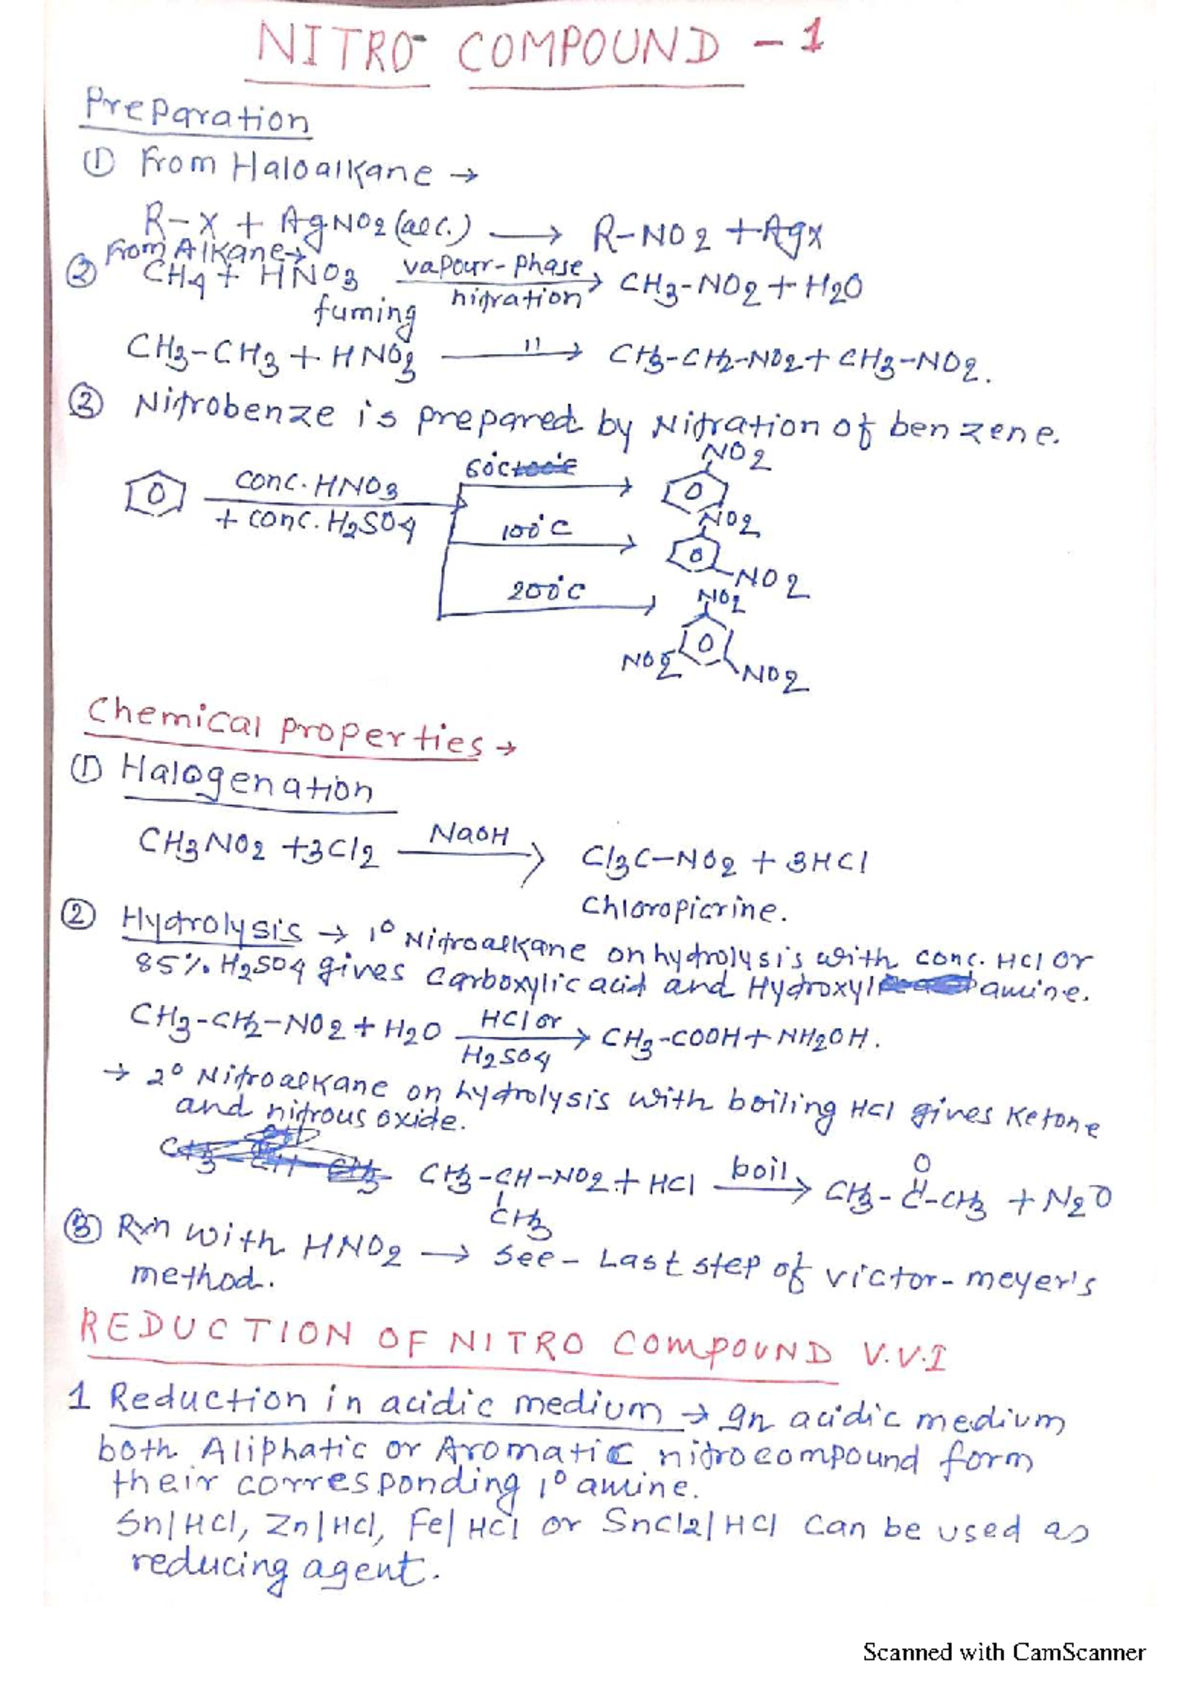 NITRO COMPOUND - 1
Preparation
① From Haloalkane →
R-X + AgNO2 (alc.) → R-NO2 + Agx
From Alkane →
② CH4 + HNO3 fuming vapour-phase nitration → CH3-NO2 + H2O
CH3-CH3 + HNO3 —"→ CH3-CH2-NO2 + CH3-NO2.
③ Nitrobenze is prepared by Nitration of benzene.
conc. HNO3 + conc. H2SO4
60°C → NO2
100°C → NO2 NO2
200°C → NO2 NO2 NO2
Chemical properties →
① Halogenation
CH3NO2 + 3Cl2 NaOH → Cl3C-NO2 + 3HCl
Chloropicrine.
② Hydrolysis → 1° Nitroalkane on hydrolysis with conc. HCl or
85% H2SO4 gives Carboxylic acid and Hydroxyl amine.
CH3-CH2-NO2 + H2O HCl or H2SO4 → CH3-COOH + NH2OH.
→ 2° Nitroalkane on hydrolysis with boiling HCl gives Ketone
and nitrous oxide.
CH3-CH-NO2 + HCl boil → CH3-C-CH3 + N2O
CH3 O
③ Rxn with HNO2 → See - Last step of victor-meyer's
method.
REDUCTION OF NITRO COMPOUND V.V.I
1 Reduction in acidic medium → In acidic medium
both Aliphatic or Aromatic nitrocompound form
their corresponding 1° amine.
Sn|HCl, Zn|HCl, Fe|HCl or SnCl2|HCl can be used as
reducing agent.
Scanned with CamScanner